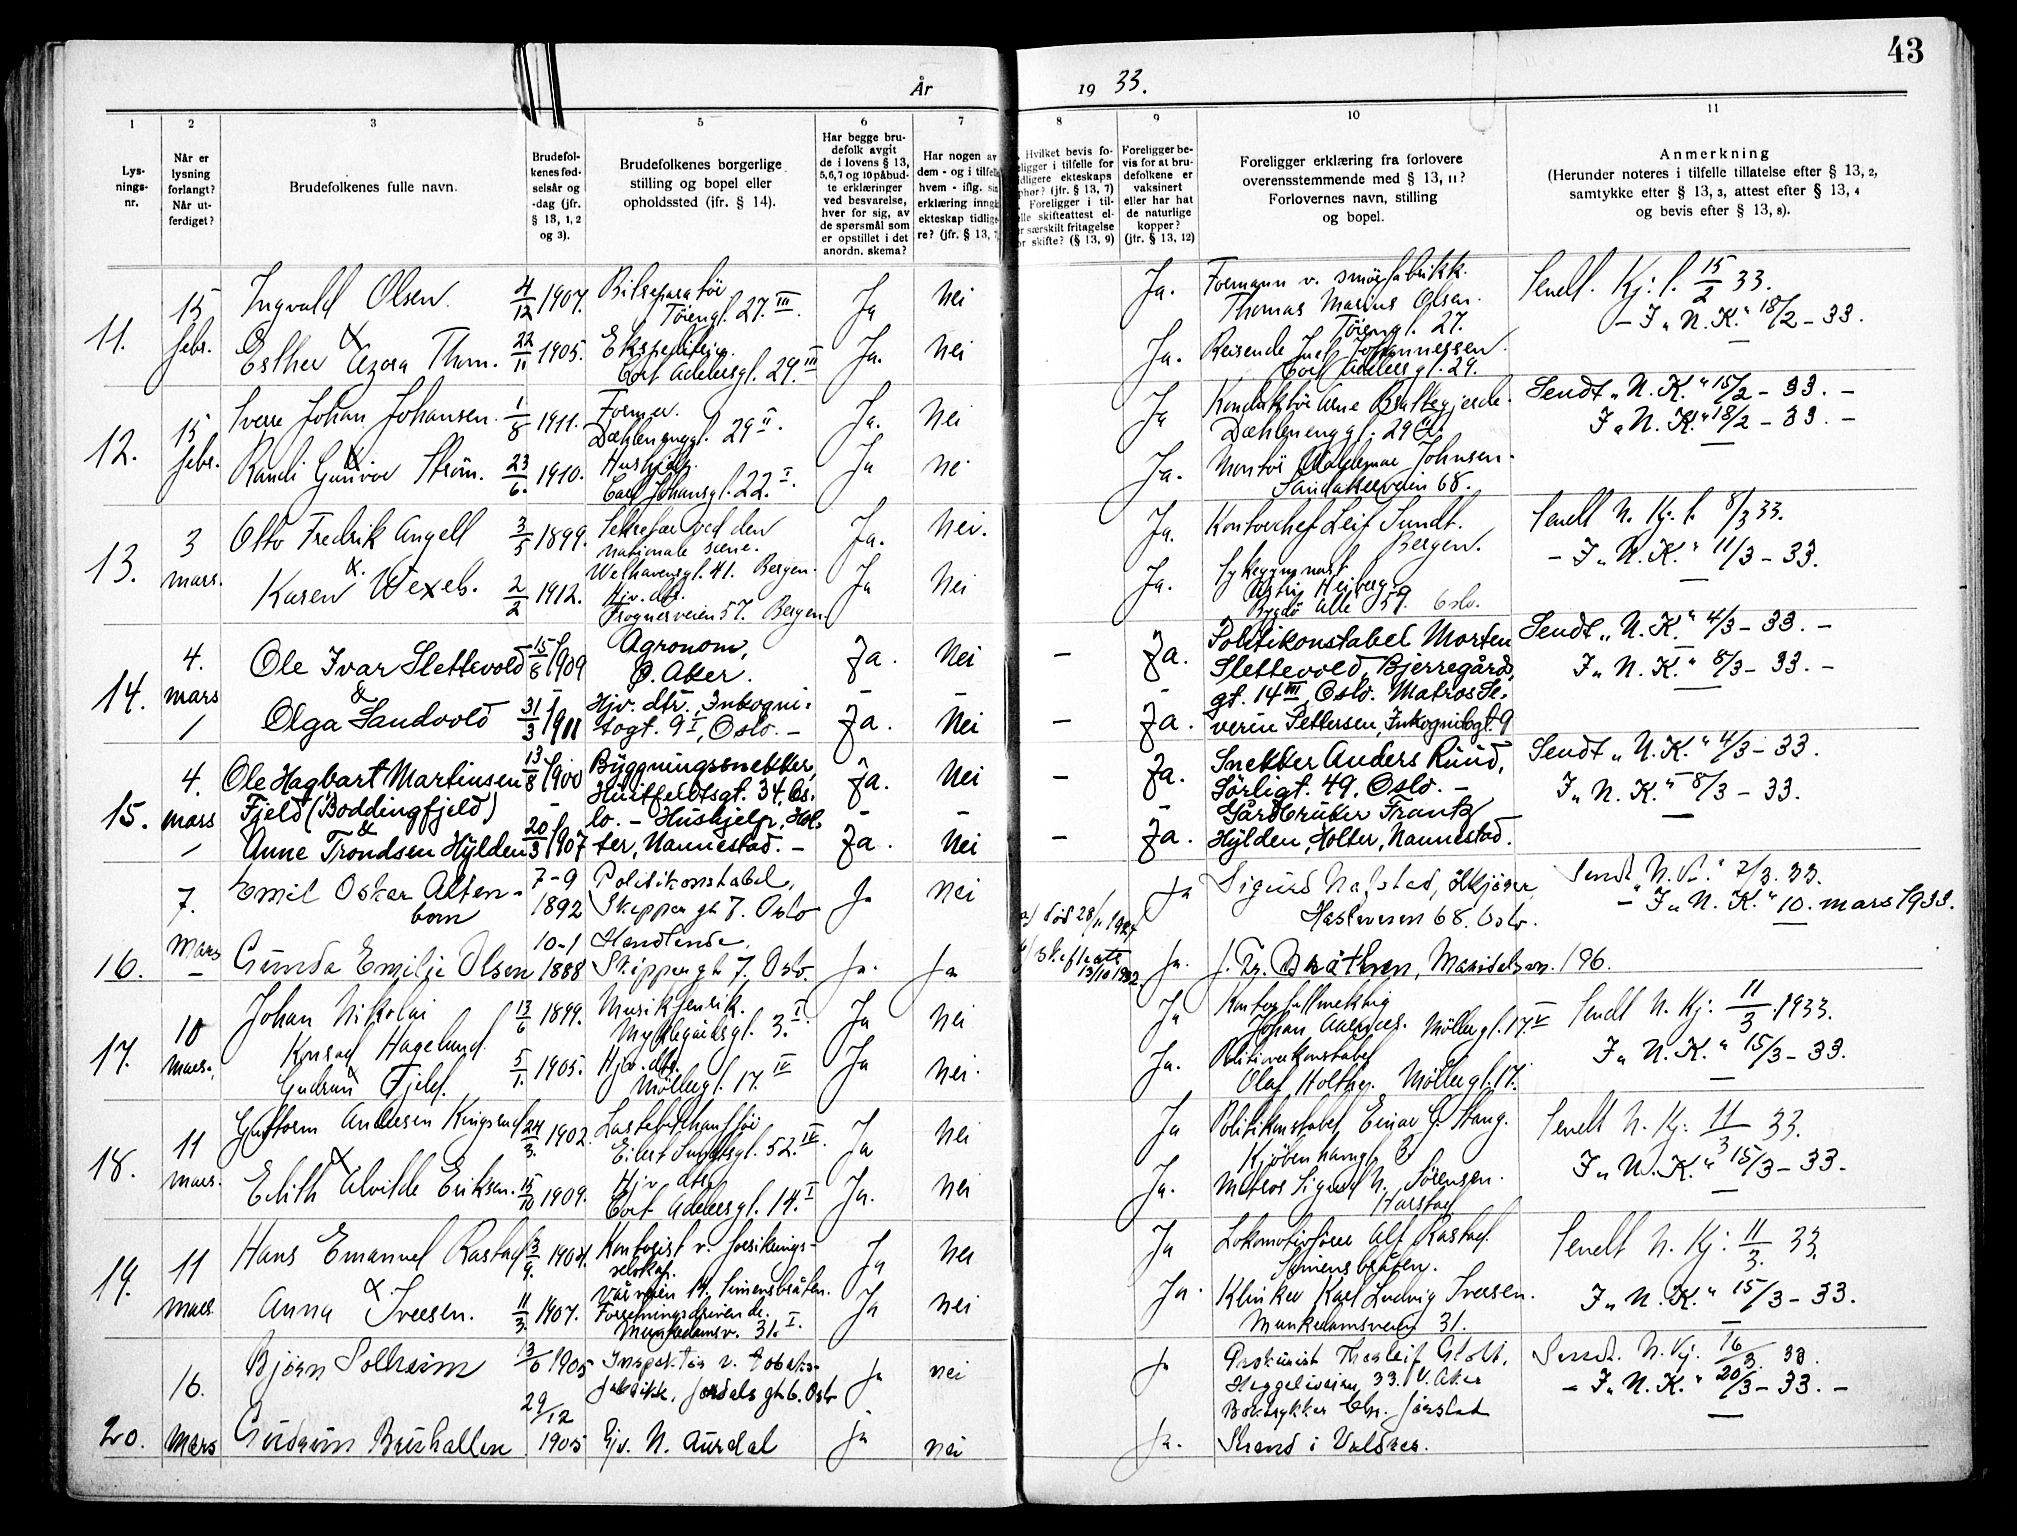 43
År 1933.
1 2 3 5 6 7 8 9 10 11
Lys-
nings-
nr.
Når er
lysning
forlangt?
Når ut-
ferdiget?
Brudefolkenes fulle navn.
Brudefol-
kenes fød-
selsår og
-dag (jfr.
§ 13, 1, 2
og 3).
Brudefolkenes borgerlige
stilling og bopel eller
opholdssted (ifr. § 14).
Har begge bru-
defolk avgit
de i lovens § 13,
5,6,7 og 10 påbud-
te erklæringer
ved besvarelse,
hver for sig, av
de spørsmål som
er opstillet i det
anordn. skema?
Har nogen av
dem - og i tilfelle
hvem - iflg. si
erklæring inng
ekteskap tidlig
re? (jfr. § 13, 7
Hvilket bevis fo-
eligger i tilfelle for
idligere ekteskaps
phør? (jfr. § 13, 7)
Foreligger i til-
elle skifteattest el-
r særskilt fritagelse
or skifte? (§ 13, 9)
Foreligger be-
vis for at bru-
defolkene er
vaksinert
eller har hat
de naturlige
kopper?
(jfr. § 13, 12)
Foreligger erklæring fra forlovere
overensstemmende med § 13, 11?
Forlovernes navn, stilling
og bopel.
Anmerkning
(Herunder noteres i tilfelle tillatelse efter § 13, 2,
samtykke efter § 13, 3, attest efter § 13, 4
og bevis efter § 13, 8).
11.
15 febr.
Ingvald Olsen. 4/12 1907.
Bilreparatør
Tøiengt. 27. III.
Ja Nei Ja.
Formann v. smørfabrikk.
Thomas Marius Olsen.
Tøiengt. 27.
Sendt. Kj. l. 15/2 33.
- I „N. K." 18/2 - 33.
&
Esther Azora Thom. 22/11 1905.
Ekspeditrise.
Cort Adelersgt. 29. III
Ja. Nei Ja.
Reisende Juel Johannessen.
Cort Adelersgt. 29.
12.
15 febr.
Sverre Johan Johansen. 1/8 1911.
Former.
Dælenenggt. 29 II.
Ja. Nei Ja
Konduktør Arne Brattegjerde.
Dælenenggt. 29
Sendt „N. K." 15/2 - 33. -
I „N. K." 18/2 - 33. -
&
Randi Gunvor Strøm. 23/6. 1910.
Hushjelp.
Carl Johansgt. 22. I.
Ja Nei Ja.
Montør Valdemar Johnsen.
Sandakerveien 68.
13.
3 mars.
Otto Fredrik Angell 3/5 1899.
Sekretær ved den
nationale scene.
Welhavensgt. 41. Bergen.
Ja. Nei. Ja.
Kontorchef Leif Sundt.
Bergen.
Sendt N. Kj. l. 8/3 33.
- I „N. K." 11/3 - 33.
&
Karen Wexels. 2/2 1912.
Hjv. dtr.
Frognerveien 57. Bergen
Ja Nei Ja.
Sykegymnast
Astri Heiberg.
Bygdø alle 59. Oslo.
14.
4. mars
Ole Ivar Slettevold 15/8 1909
Agronom,
Ø. Aker.
Ja. Nei - Ja.
Politikonstabel Morten
Slettevold, Bjerregårds-
gt. 14 III, Oslo. Matros Se-
verin Pettersen, Inkognitogt. 9
Sendt „N. K." 4/3 - 33. -
I „N. K." 8/3 - 33. -
&
Olga Sandvold 31/3 1911
Hjv. dtr., Inkogni-
togt. 9 I, Oslo. -
Ja. Nei - Ja.
15.
4. mars
Ole Hagbart Martinsen 13/8 1900
Fjeld (Boddingfjeld)
Byggningssnekker,
Huitfeldtsgt. 34, Os-
lo. - Hushjelp, Hol-
ter, Nannestad. -
Ja. Nei - Ja.
Snekker Anders Ruud,
Sørligt. 49, Oslo. -
Gårdbruker Frantz
Hylden, Holter, Nannestad.
Sendt „N. K." 4/3 - 33.
I „N. K." 8/3 - 33.
&
Anne Trondsen Hylden 20/3 1907
Ja. Nei - Ja.
16.
7. Mars
Emil Oskar Alten-
born 7-9 1892
Politikonstabel,
Skippergt 7. Oslo
Ja nei Ja
Sigurd Nafstad,
Hasleveien 68. Oslo.
Sendt „N. K." 7/3. 33.
- I „N. K." 10. mars 1933.
Gunda Emilie Olsen 10-1 1888
Handlende,
Skippergt 7. Oslo.
Ja. Ja
død 28/11 1924
skifteatt
13/10 1932.
Ja.
J. Fr. Bråthen, Maridalsvn. 196.
17.
10 mars.
Johan Nikolai
Konrad Hagelund. 13/6 1899.
Musikfenrik.
Myklegårdsgt. 3. I.
Ja Nei Ja
Kontorfullmektig
Johan Andersen. Møllergt. 17. IV
Sendt N. Kj. 11/3 1933.
I „N. K." 15/3 - 33.
&
Gudrun Fjeld. 5/1. 1905.
Hjv. dtr.
Møllergt. 17. IV
Ja Nei. Ja.
Politioverkonstabel
Olaf Holthe. Møllergt. 17.
18.
11 mars.
Guttorm Andersen Kingsrud 24/3. 1902.
Lastebilchauffør
Eilert Sundtsgt. 52. IV.
Ja Nei Ja
Politikonstabel Einar G. Stang.
Kjøbenhavngt. 3.
Sendt N. Kj. 11/3 33.
I „N. K." 15/3 - 33.
&
Edith Alvilde Eriksen. 15/10 1909.
Hjv. dtr.
Cort Adelersgt. 14. I
Ja. Nei Ja.
Matros Sigurd N. Sørensen.
Harstad
19.
11 mars.
Hans Emanuel Rastad 3/9. 1904.
Kontorist v. forsikrings-
selskap.
Vårveien 14. Simensbråten.
Ja Nei Ja
Lokomotivfører Alf Rastad.
Simensbråten.
Sendt N. Kj. 11/3. 33.
I „N. K." 15/3 - 33.
&
Anna Iversen. 11/3. 1907.
Forretningsdrivende.
Munkedamsv. 31. I.
Ja Nei Ja.
Klinker Karl Ludvig Iversen.
Munkedamsveien 31.
20.
16. Mars
Bjørn Solheim 13/6 1905
Inspektør v. tobaks-
fabrikk, Jordalsgt 6. Oslo
Ja nei Ja
Prokurist Thorleif Glott,
Heggeliveien 33. V. Aker
Boktrykker Chr. Jørstad
Strand i Valdres.
Sendt. N. Kj. 16/3. 33.
- I „N. K." 20/3 - 33. -
Gudrun Bruhallen 29/12 1905
Hjv. N. Aurdal
Ja nei Ja.